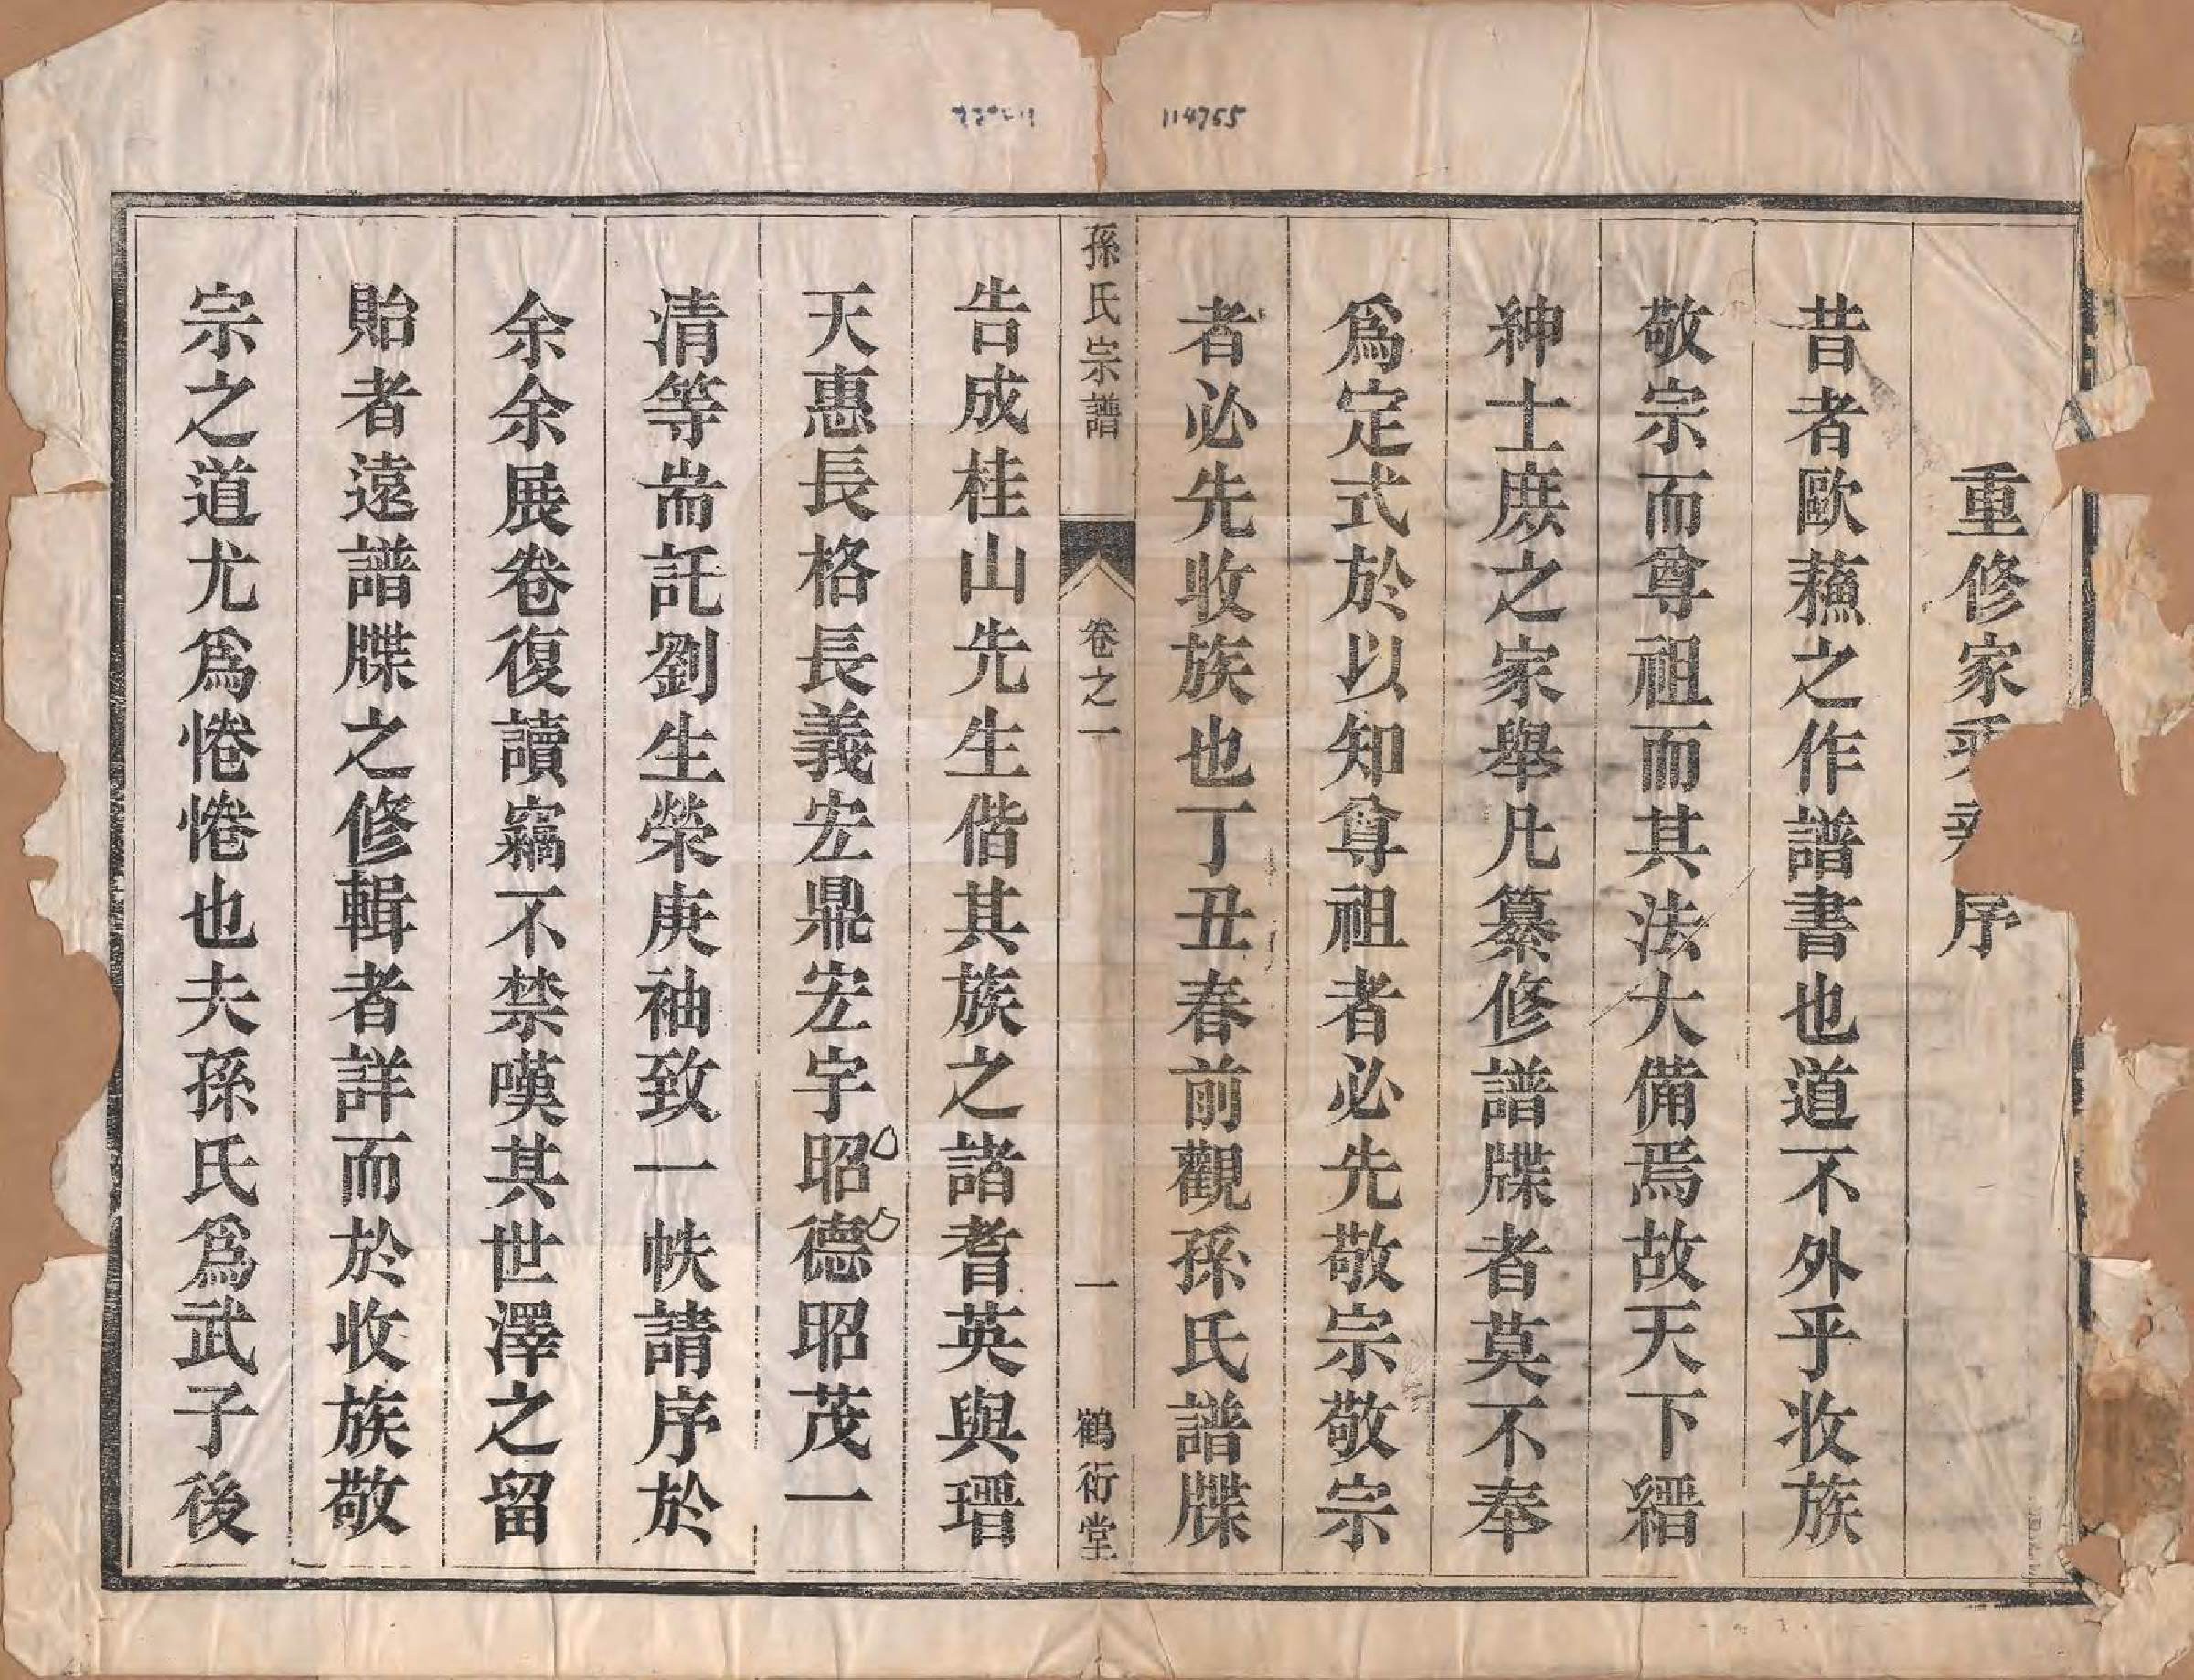 114765
重修家乘
序
昔者歐蘇之作譜書也道不外乎收族
敬宗而尊祖而其法大備焉故天下縉
紳士庶之家舉凡纂修譜牒者莫不奉
爲定式於以知尊祖者必先敬宗敬宗
者必先收族也丁丑春前觀孫氏譜牒
孫氏宗譜
卷之一
一
鶴衍堂
告成桂山先生偕其族之諸耆英與瑨
天惠長格長義宏鼎宏宇昭德昭茂一
清等耑託劉生榮庚袖致一帙請序於
余余展卷復讀竊不禁嘆其世澤之留
貽者遠譜牒之修輯者詳而於收族敬
宗之道尤爲惓惓也夫孫氏爲武子後